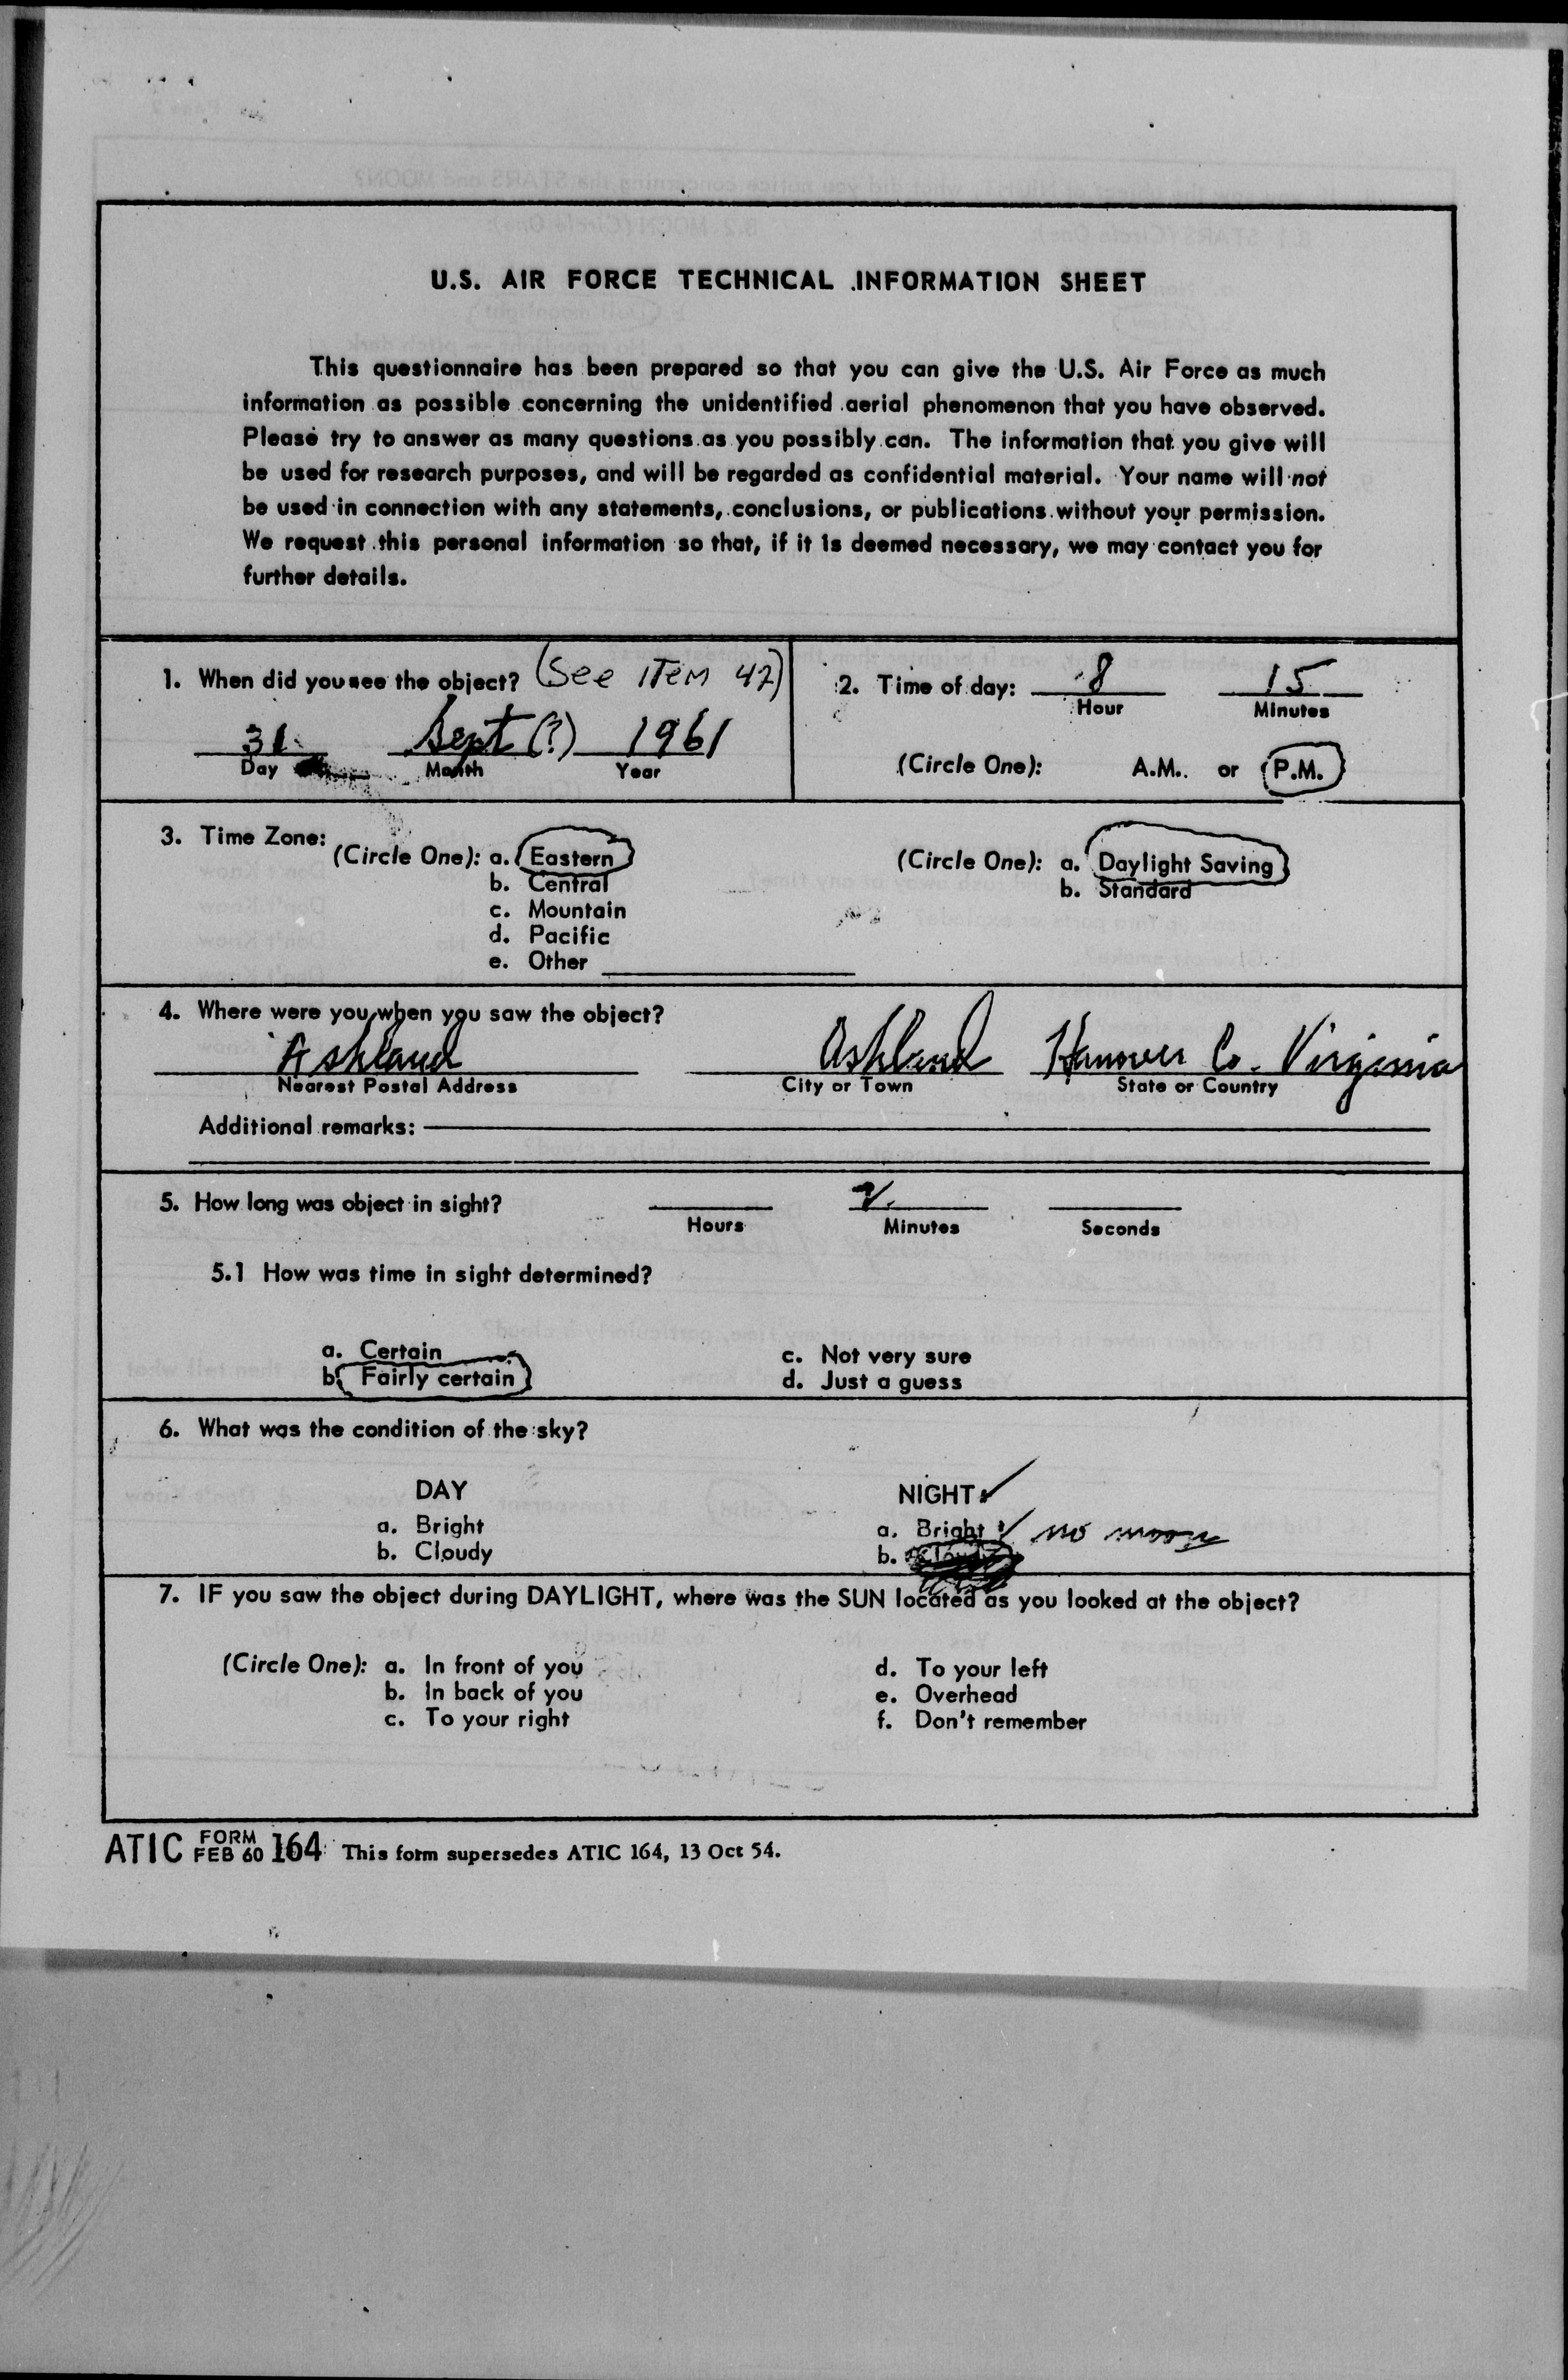 U.S. AIR FORCE TECHNICAL INFORMATION SHEET
This questionnaire has been prepared so that you can give the U.S. Air Force as much
information as possible concerning the unidentified aerial phenomenon that you have observed.
Please try to answer as many questions as you possibly can. The information that you give will
be used for research purposes, and will be regarded as confidential material. Your name will not
be used in connection with any statements, conclusions, or publications without your permission.
We request this personal information so that, if it is deemed necessary, we may contact you for
further details.
1. When did you see the object? (See ITEM 42)
31 Sept (?) 1961
Day Month Year
2. Time of day: 8 15
Hour Minutes
(Circle One): A.M. or P.M.
3. Time Zone:
(Circle One): a. Eastern
b. Central
c. Mountain
d. Pacific
e. Other
(Circle One): a. Daylight Saving
b. Standard
4. Where were you when you saw the object?
Ashland Ashland Hanover Co. Virginia
Nearest Postal Address City or Town State or Country
Additional remarks:
5. How long was object in sight? 2
Hours Minutes Seconds
5.1 How was time in sight determined?
a. Certain
b. Fairly certain
c. Not very sure
d. Just a guess
6. What was the condition of the sky?
DAY
a. Bright
b. Cloudy
NIGHT ✓
a. Bright ✓ no moon
b. Cloudy
7. IF you saw the object during DAYLIGHT, where was the SUN located as you looked at the object?
(Circle One): a. In front of you
b. In back of you
c. To your right
d. To your left
e. Overhead
f. Don't remember
ATIC FORM FEB 60 164 This form supersedes ATIC 164, 13 Oct 54.